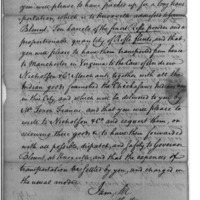 you will please to have packed up for a long trans
portation, which is to Governor
Blount, Ten barrels of the finest Rifle powder and a
proportionable quantity of Rifle flints, and that
you will please to have them transported from hence
to Manchester in Virginia to the Care of
Nicholson & Co. Merchants, together with all the
Indian goods furnished the Cherokees
in this City, and which will be delivered to you by
Mr. Tench Francis, and that you will please to
write to Nicholson & Co. and request them, on
receiving these goods to have them forwarded
with all possible dispatch, and safety to Governor
Blount, at and that the expences of
transportation be settled by you, and charged in
the usual mode.
I am, Sir